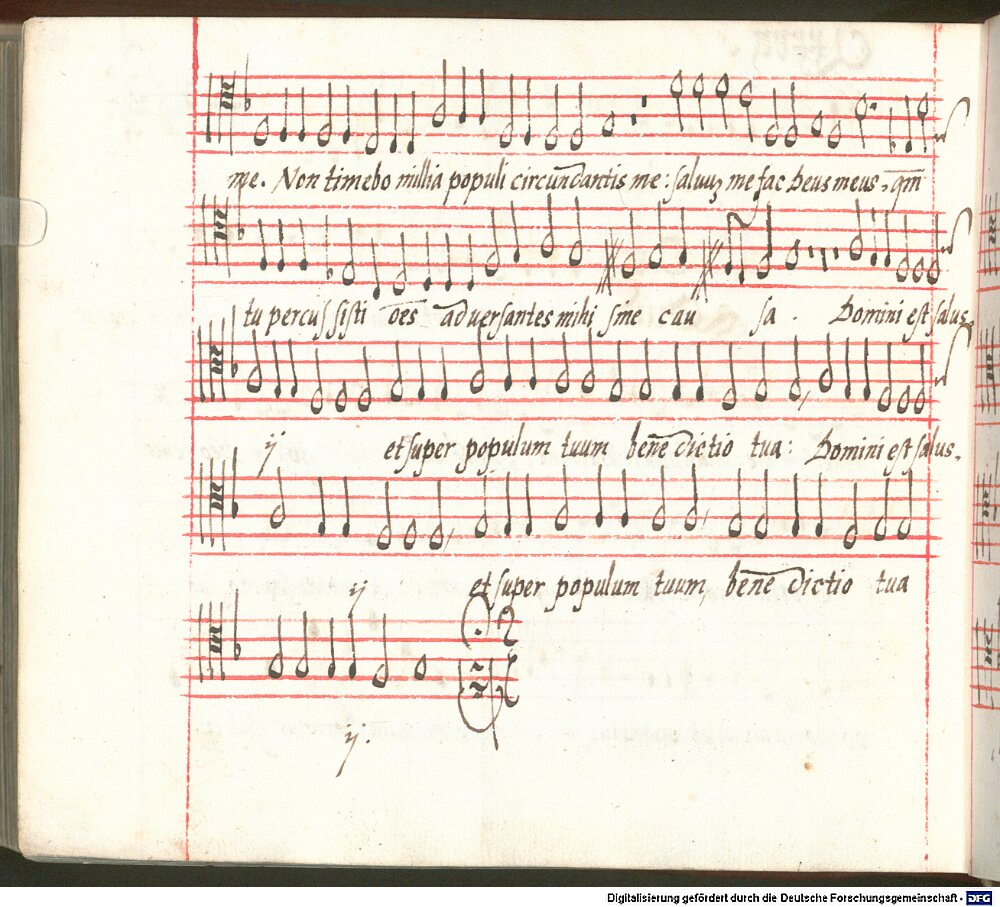 me. Non timebo millia populi circūndantis me: saluuʒ me fac Deus meus, qm̄
tu percussisti oēs aduersantes mihi sine cau sa. Domini est salus,
ij et super populum tuum benē dictio tua: Domini est salus,
ij et super populum tuum, benē dictio tua
ij.
Digitalisierung gefördert durch die Deutsche Forschungsgemeinschaft - DFG